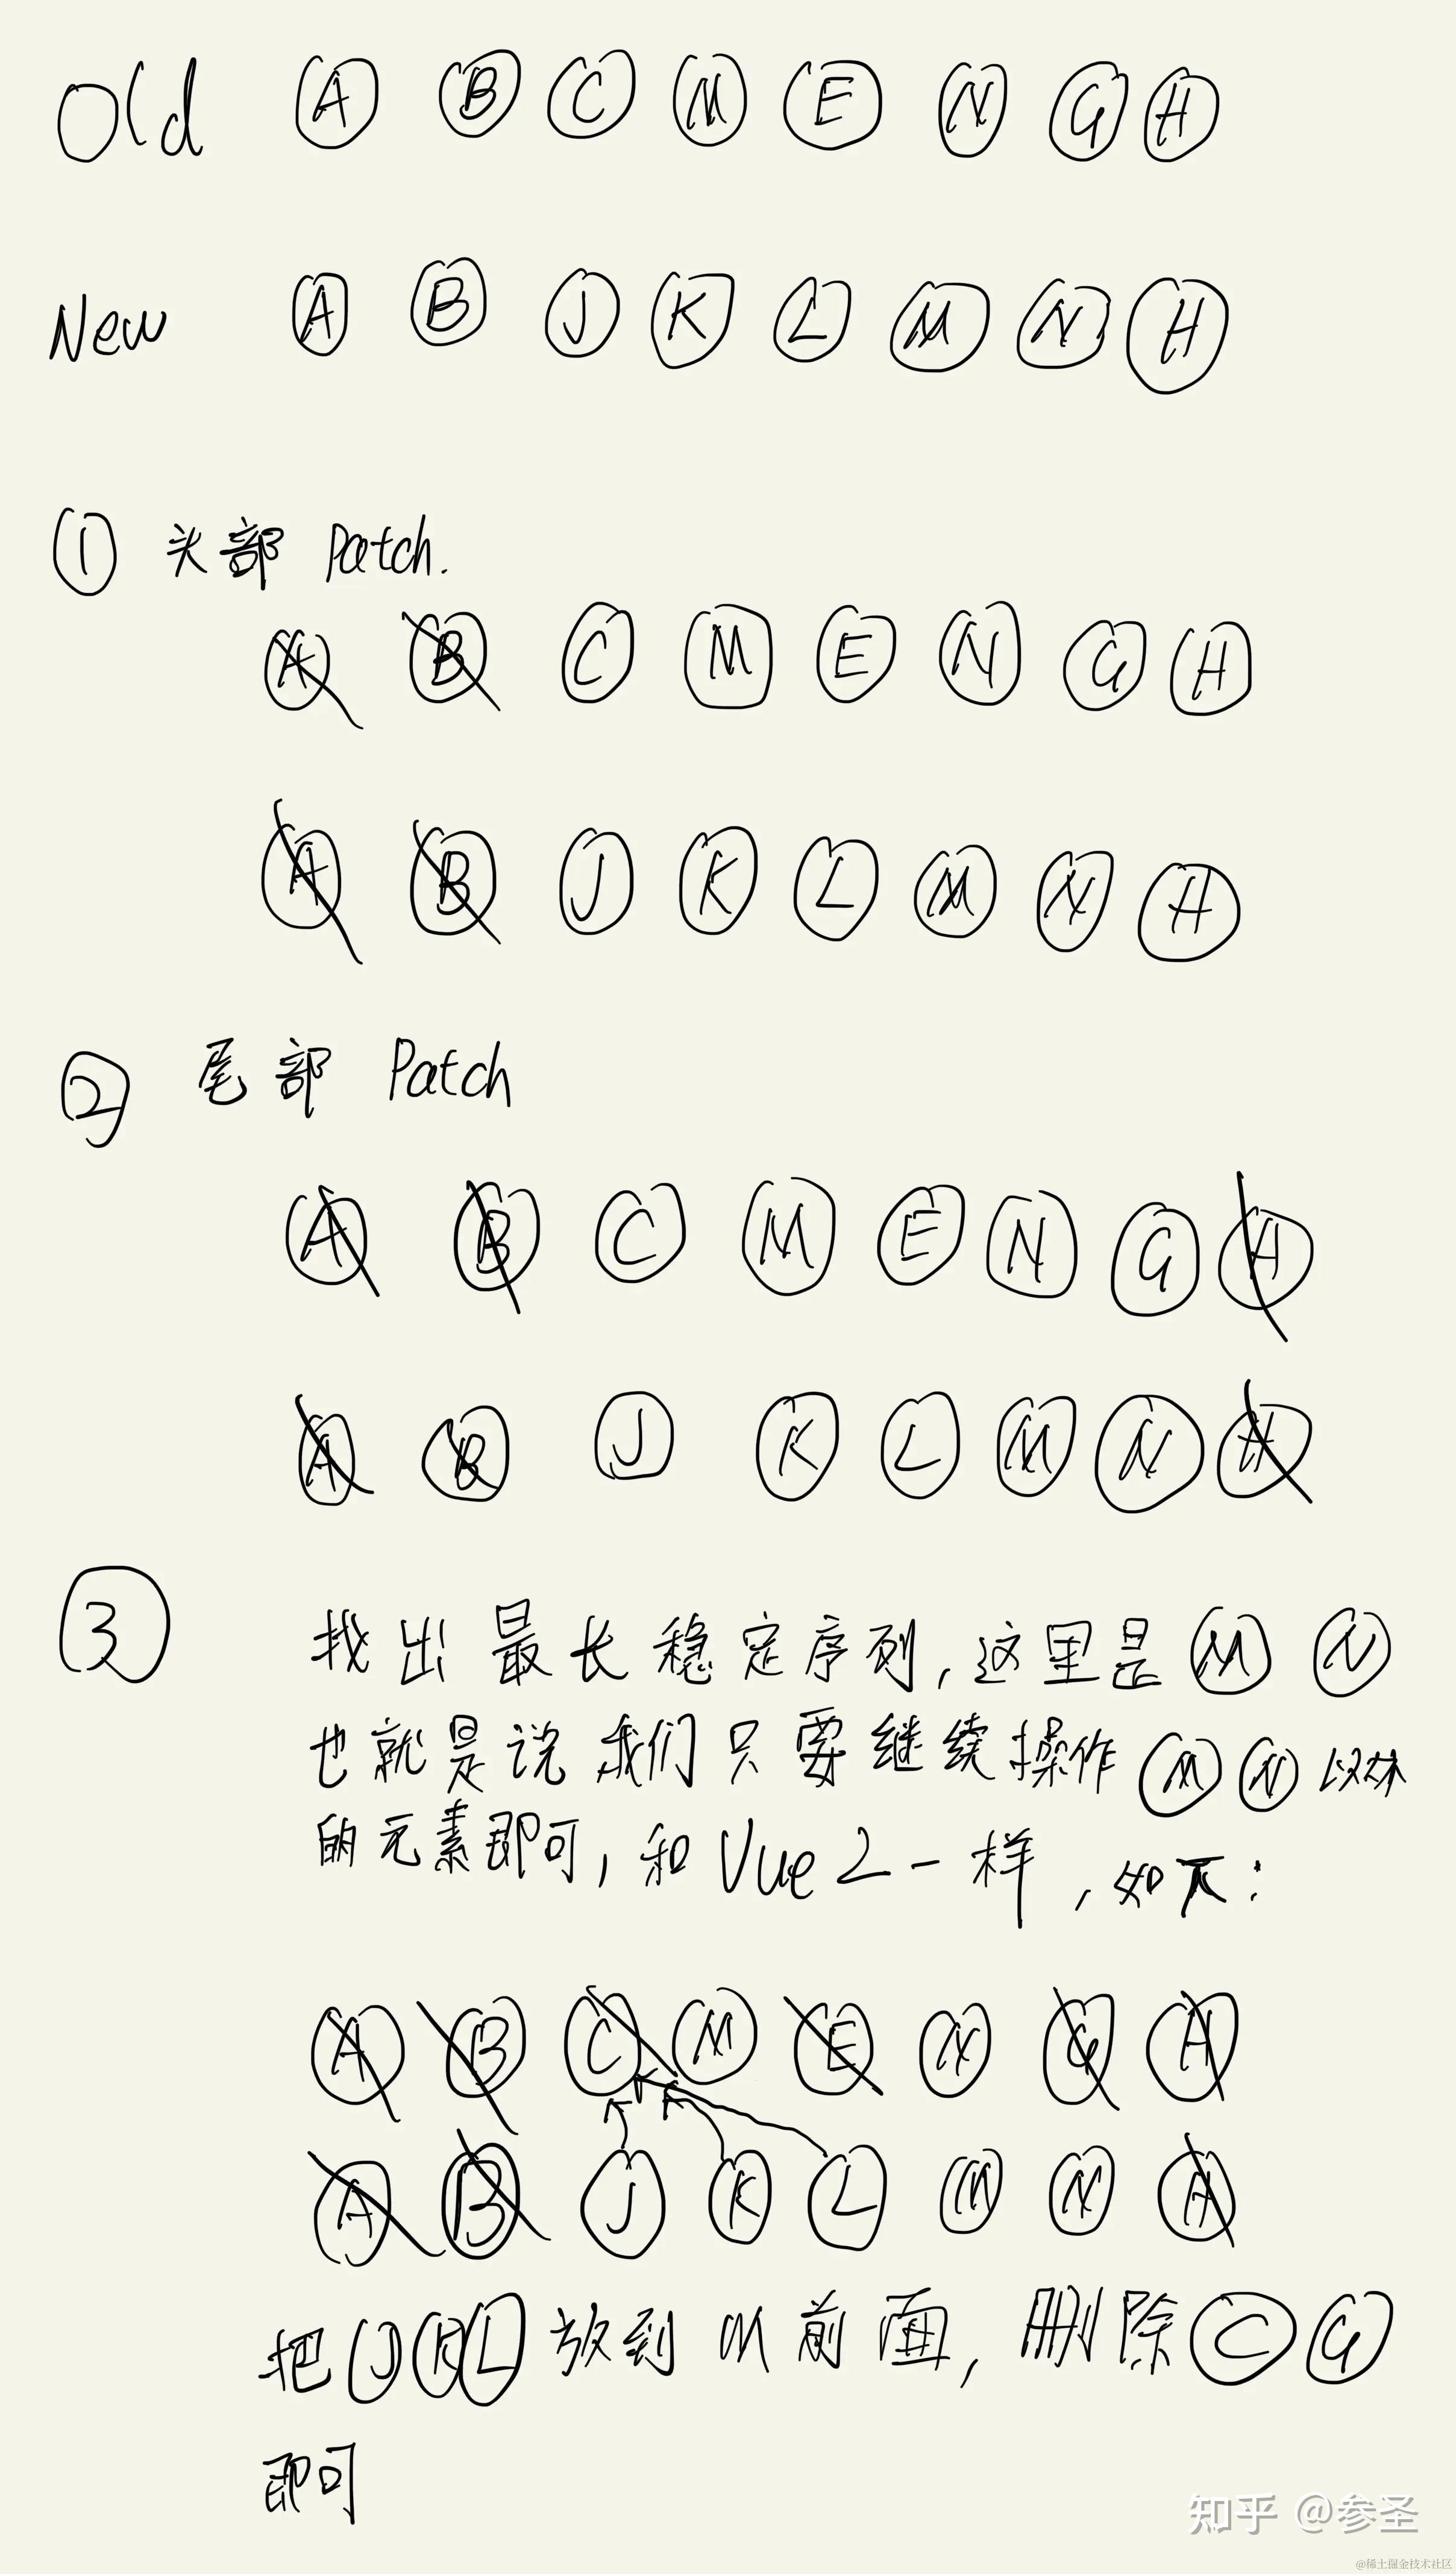 Old A B C M E N G H
New A B J K L M N H
① 头部 Patch.
A B C M E N G H
A B J K L M N H
② 尾部 Patch
A B C M E N G H
A B J K L M N H
③ 找出最长稳定序列,这里是 M N
也就是说我们只要继续操作 M N 以外
的元素即可,和Vue2一样,如下:
A B C M E N G H
A B J K L M N H
把 J K L 放到 M 前面,删除 C G
即可
知乎 @参圣
@稀土掘金技术社区